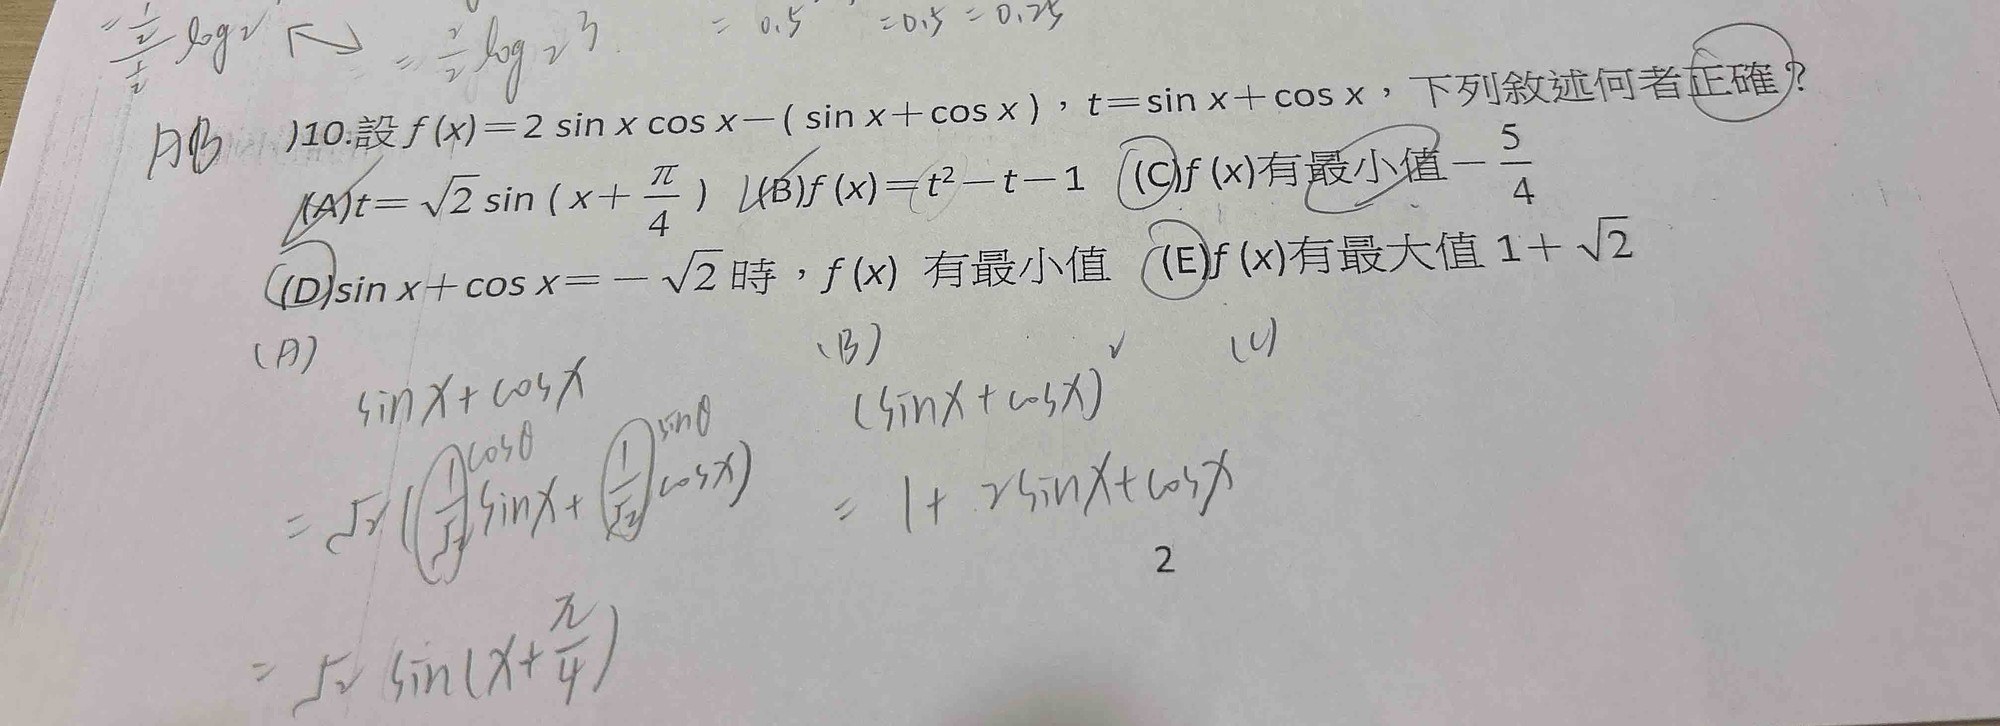 = 1/2 / 1/2 log2 ↔ = 2/2 log 2 3 = 0.5 = 0.5 = 0.25
AB )10.設 f (x)=2 sin x cos x-( sin x+cos x ),t=sin x+cos x,下列敘述何者正確?
(A)t= √2 sin ( x+ π/4 ) (B)f (x)=t²-t-1 (C)f (x)有最小值- 5/4
(D)sin x+cos x=- √2 時,f (x) 有最小值 (E)f (x)有最大值 1+ √2
(A) (B) (C)
sinx+cosx (sinx+cosx)²
cosθ sinθ
= √2 ( 1/√2 sinx+ 1/√2 cosx) = 1+ 2sinx+cosx
2
= √2 sin(x+ π/4 )